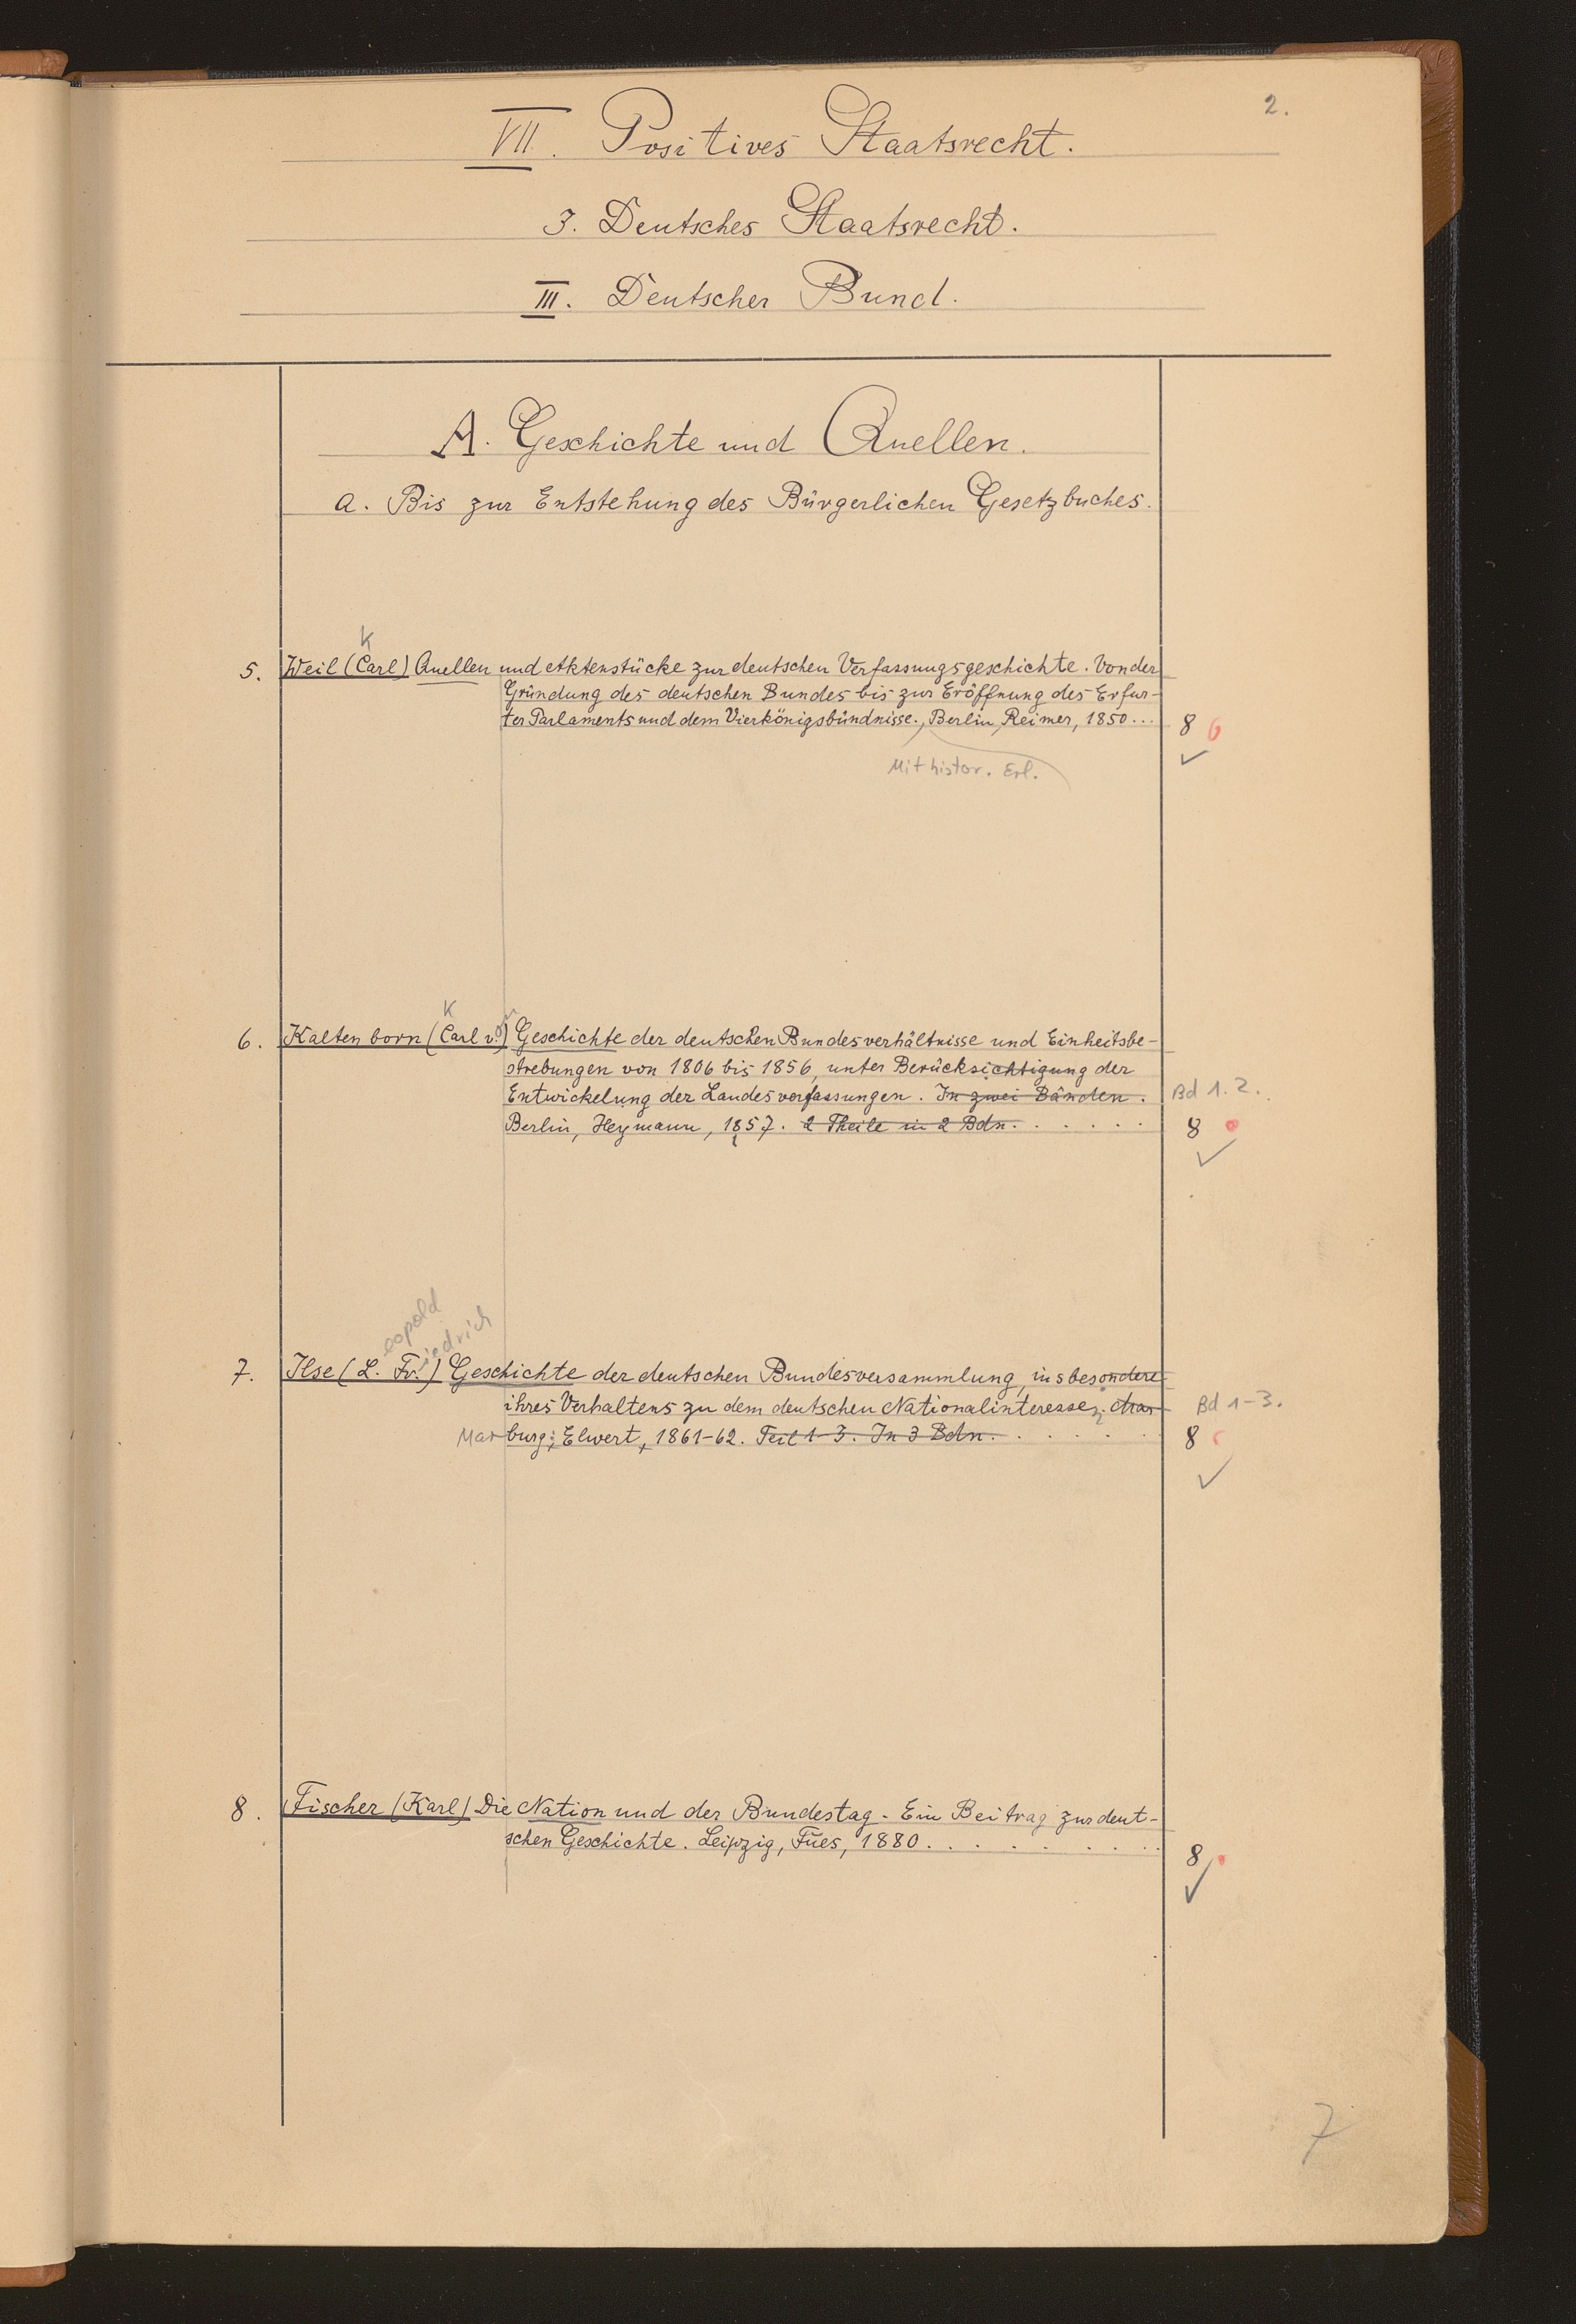 2.
VII. Positives Staatsrecht.
3. Deutsches Staatsrecht.
III. Deutscher Bund.
A. Geschichte und Quellen.
a. Bis zur Entstehung des Bürgerlichen Gesetzbuches.
K
5. Weil (Carl) Quellen und Aktenstücke zur deutschen Verfassungsgeschichte. Von der
Gründung des deutschen Bundes bis zur Eröffnung des Erfur-
ter Parlaments und dem Vierkönigsbündnisse., Berlin, Reimer, 1850... 8
Mit histor. Erl.
K
6. Kaltenborn (Carl von) Geschichte der deutschen Bundesverhältnisse und Einheitsbe-
strebungen von 1806 bis 1856, unter Berücksichtigung der
Entwickelung der Landesverfassungen. In zwei Bänden. Bd 1. 2.
Berlin, Heymann, 1857. 2 Theile in 2 Bdn. . . . . . 8
eopold
iedrich
7. Ilse (L. Fr.) Geschichte der deutschen Bundesversammlung, insbesondere
ihres Verhaltens zu dem deutschen Nationalinteressen. Mar- Bd 1-3.
Marburg; Elwert, 1861-62. Teil 1-3. In 3 Bdn. . . . . . 8
8. Fischer (Karl) Die Nation und der Bundestag. Ein Beitrag zur deut-
schen Geschichte. Leipzig, Fues, 1880. . . . . . . . 8
7